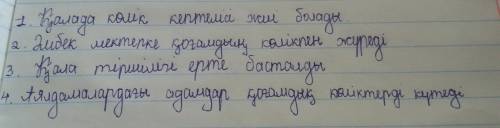 1. Қалада көлік кептелісі жиі болады.
2. Әлібек мектепке қоғамдық көлікпен жүреді
3. Қала тіршілігі ерте басталды
4. Аялдамалардағы адамдар қоғамдық көліктерді күтеді